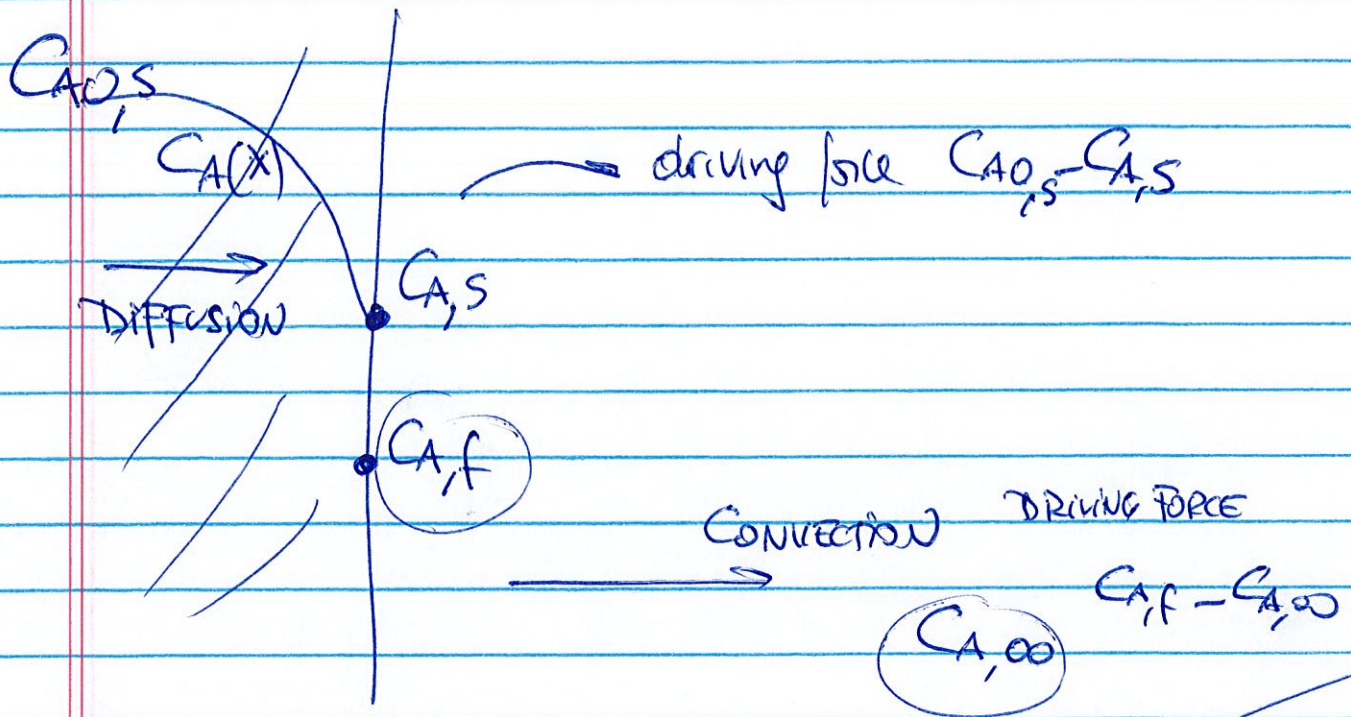 CAO,S
CA(X)
driving force CAO,S-CA,S
CA,S
DIFFUSION
CA,f
CONVECTION DRIVING FORCE
CA,f - CA,∞
CA,∞